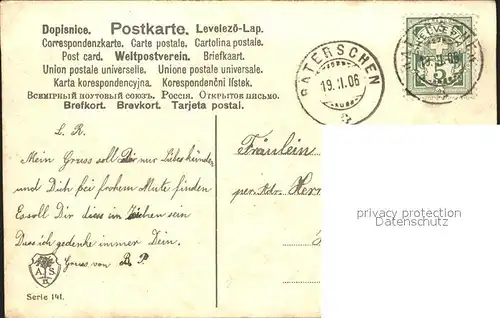 Dopisnice. Postkarte. Levelező-Lap.
Correspondenzkarte. Carte postale. Cartolina postale.
Post card. Weltpostverein. Briefkaart.
Union postale universelle. Unione postale universale.
Karta korespondencyjna. Korespondenční listek.
Всемірный почтовый союзъ. Россія. Открытое письмо.
Brefkort. Brevkort. Tarjeta postal.
PATERSCHEN
19.II.06
HELVETIA
5
L. R.
Mein Gruss soll Dir nur Liebes künden
und Dich bei frohem Mute finden
Es soll Dir dies im Zeichen sein
Dass ich gedenke immer Dein.
Gruss von R. P.
Fräulein
per. Adr. Herr
privacy protection
Datenschutz
A S
B
Serie 141.